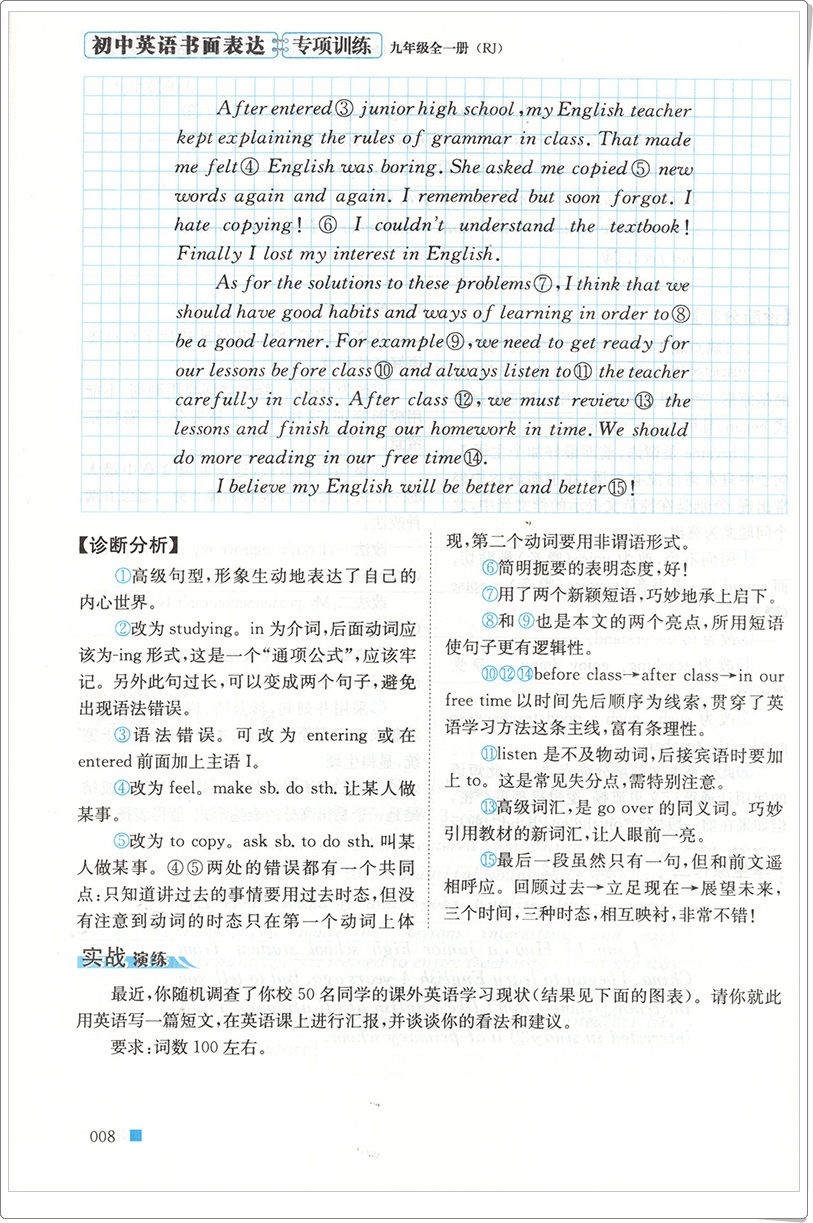 初中英语书面表达 专项训练 九年级全一册（RJ）
After entered③ junior high school,my English teacher
kept explaining the rules of grammar in class. That made
me felt④ English was boring. She asked me copied⑤ new
words again and again. I remembered but soon forgot. I
hate copying! ⑥ I couldn't understand the textbook!
Finally I lost my interest in English.
As for the solutions to these problems⑦,I think that we
should have good habits and ways of learning in order to⑧
be a good learner. For example⑨,we need to get ready for
our lessons before class⑩ and always listen to⑪ the teacher
carefully in class. After class ⑫, we must review ⑬ the
lessons and finish doing our homework in time. We should
do more reading in our free time⑭.
I believe my English will be better and better⑮!
【诊断分析】
①高级句型,形象生动地表达了自己的
内心世界。
②改为 studying。in 为介词,后面动词应
该为-ing 形式,这是一个“通项公式”,应该牢
记。另外此句过长,可以变成两个句子,避免
出现语法错误。
③语法错误。可改为 entering 或在
entered 前面加上主语 I。
④改为 feel。make sb. do sth. 让某人做
某事。
⑤改为 to copy。ask sb. to do sth. 叫某
人做某事。④⑤两处的错误都有一个共同
点:只知道讲过去的事情要用过去时态,但没
有注意到动词的时态只在第一个动词上体
现,第二个动词要用非谓语形式。
⑥简明扼要的表明态度,好!
⑦用了两个新颖短语,巧妙地承上启下。
⑧和⑨也是本文的两个亮点,所用短语
使句子更有逻辑性。
⑩⑫⑭before class→after class→in our
free time 以时间先后顺序为线索,贯穿了英
语学习方法这条主线,富有条理性。
⑪listen 是不及物动词,后接宾语时要加
上 to。这是常见失分点,需特别注意。
⑬高级词汇,是 go over 的同义词。巧妙
引用教材的新词汇,让人眼前一亮。
⑮最后一段虽然只有一句,但和前文遥
相呼应。回顾过去→立足现在→展望未来,
三个时间,三种时态,相互映衬,非常不错!
实战 演练
最近,你随机调查了你校 50 名同学的课外英语学习现状(结果见下面的图表)。请你就此
用英语写一篇短文,在英语课上进行汇报,并谈谈你的看法和建议。
要求:词数 100 左右。
008